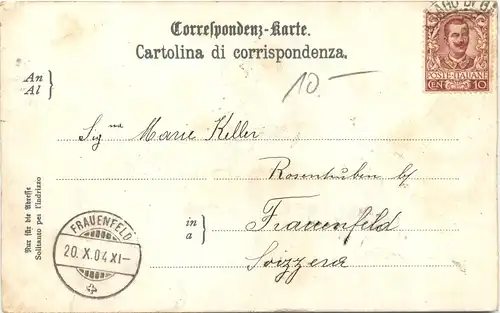 Correspondenz-Karte.
Cartolina di corrispondenza.
POSTE ITALIANE
CEN 10
10.—
An
Al
Signa Marie Keller
Rosenhuben b/
in
a
Frauenfeld
Svizzera
Nur für die Adresse
Soltanto per l'indirizzo
FRAUENFELD
20. X. 04 XI—